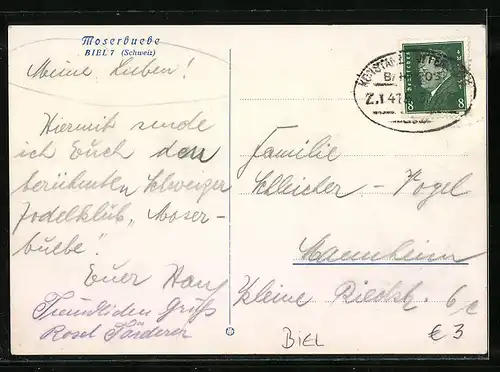 Moserbuebe
BIEL 7 (Schweiz)
Meine Lieben!
Hiermit sende
ich Euch den
berühmten Schweizer
Jodelklub „Moser-
buebe".
Euer Hans
Freundlichen Gruß
Rosel
KONSTANZ
BAHNPOST
Z.147
DEUTSCHES REICH
8 8
Familie
Schleicher - Vogel
Mannheim
Kleine Riedstr. 6/c
BIEL
€ 3